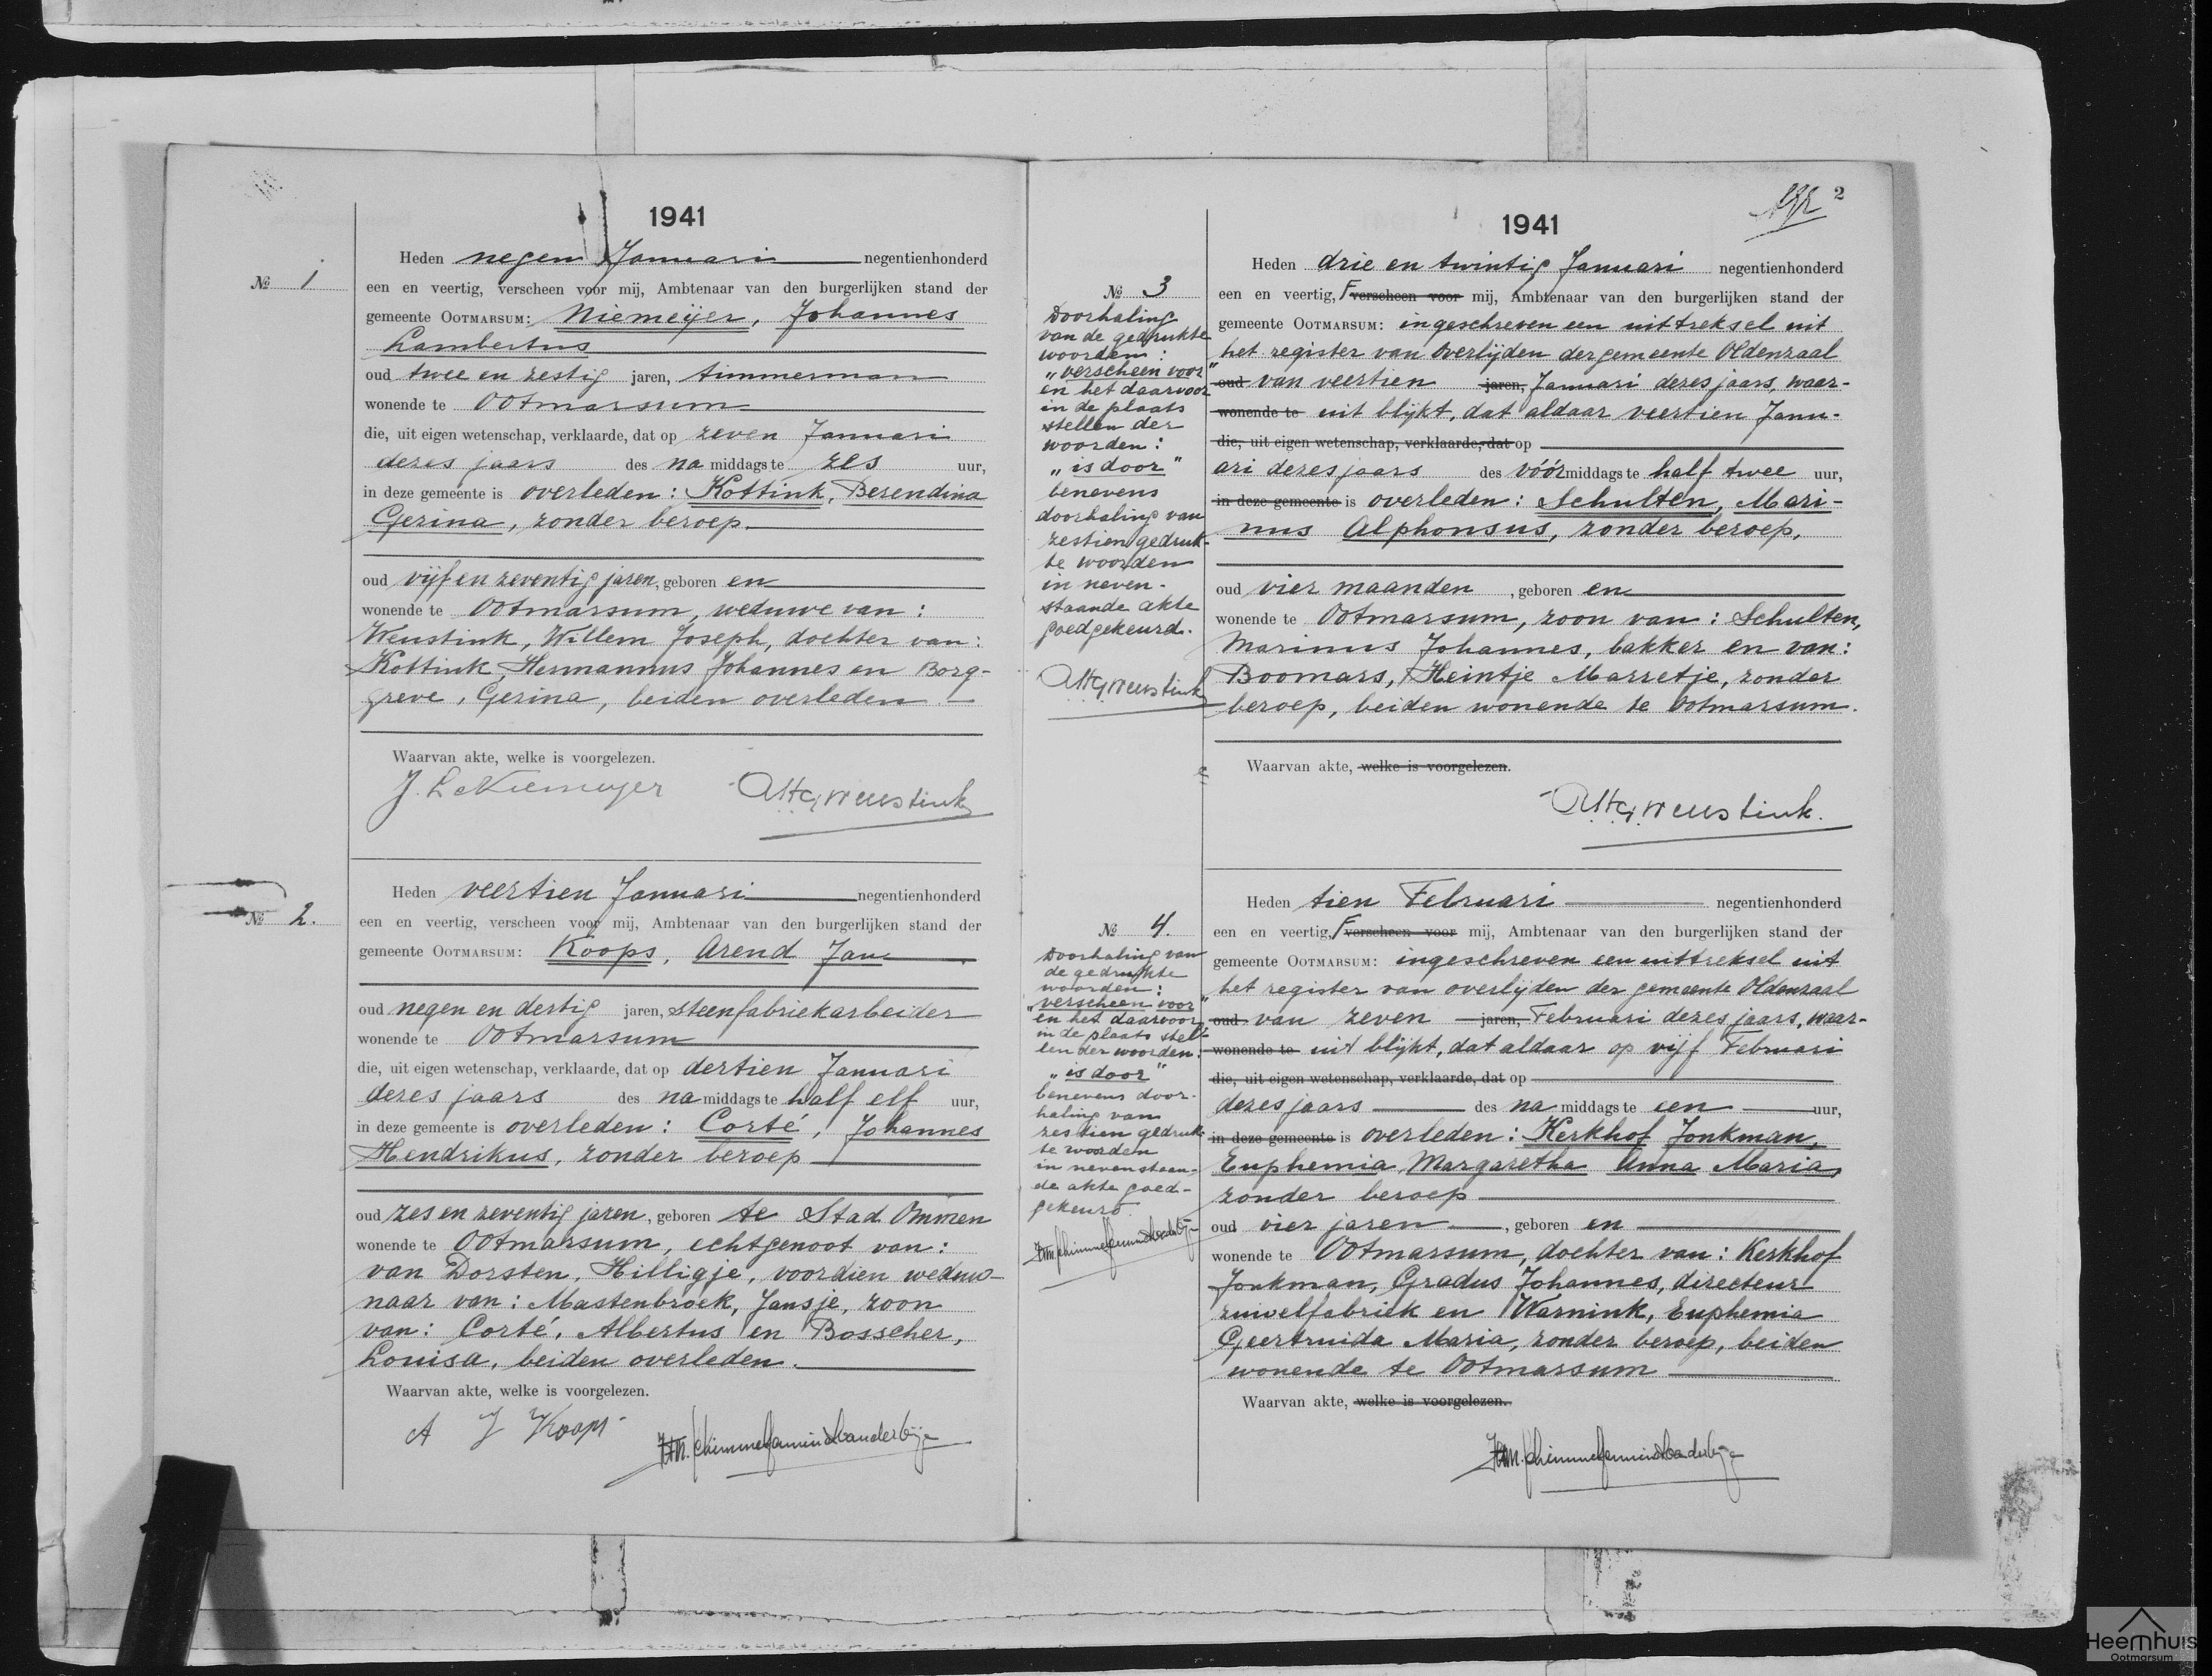 1941
Nº 1
Heden negen Januari negentienhonderd
een en veertig, verscheen voor mij, Ambtenaar van den burgerlijken stand der
gemeente OOTMARSUM: Niemeijer, Johannes
Lambertus
oud twee en zestig jaren, timmerman
wonende te Ootmarsum
die, uit eigen wetenschap, verklaarde, dat op zeven Januari
dezes jaars des na middags te zes uur,
in deze gemeente is overleden: Kottink, Berendina
Gezina, zonder beroep.
oud vijf en zeventig jaren, geboren en
wonende te Ootmarsum, weduwe van:
Weustink, Willem Joseph, dochter van:
Kottink, Hermannus Johannes en Borg-
greve, Gezina, beiden overleden.
Waarvan akte, welke is voorgelezen.
J. L Niemeyer AHG Weustink
Nº 2.
Heden veertien Januari negentienhonderd
een en veertig, verscheen voor mij, Ambtenaar van den burgerlijken stand der
gemeente OOTMARSUM: Koops, Arend Jan
oud negen en dertig jaren, steenfabriekarbeider
wonende te Ootmarsum
die, uit eigen wetenschap, verklaarde, dat op dertien Januari
dezes jaars des na middags te half elf uur,
in deze gemeente is overleden: Corté, Johannes
Hendrikus, zonder beroep
oud zes en zeventig jaren, geboren te Stad Ommen
wonende te Ootmarsum, echtgenoot van:
van Dorsten, Hilligje, voordien weduw-
naar van: Mastenbroek, Jansje, zoon
van: Corté, Albertus en Bosscher,
Louisa, beiden overleden.
Waarvan akte, welke is voorgelezen.
A J Koops
2
1941
Nº 3
Doorhaling
van de gedrukte
woorden:
"verscheen voor"
en het daarvoor
in de plaats
stellen der
woorden:
"is door"
benevens
doorhaling van
zestien gedruk-
te woorden
in neven-
staande akte
goedgekeurd.
AHG Weustink
Heden drie en twintig Januari negentienhonderd
een en veertig, verscheen voor mij, Ambtenaar van den burgerlijken stand der
gemeente OOTMARSUM: ingeschreven een uittreksel uit
het register van overlijden der gemeente Oldenzaal
oud van veertien jaren, Januari dezes jaars, waar-
wonende te uit blijkt, dat aldaar veertien Janu-
die, uit eigen wetenschap, verklaarde, dat op
ari dezes jaars des vóór middags te half twee uur,
in deze gemeente is overleden: Schulten, Mari-
nus Alphonsus, zonder beroep,
oud vier maanden, geboren en
wonende te Ootmarsum, zoon van: Schulten,
Marinus Johannes, bakker en van:
Boomars, Heintje Marretje, zonder
beroep, beiden wonende te Ootmarsum.
Waarvan akte, welke is voorgelezen.
AHG Weustink.
Nº 4.
Doorhaling van
de gedrukte
woorden:
"verscheen voor"
en het daarvoor
in de plaats stel-
len der woorden:
"is door"
benevens door-
haling van
zestien gedruk-
te woorden
in nevenstaan-
de akte goed-
gekeurd
Heden tien Februari negentienhonderd
een en veertig, verscheen voor mij, Ambtenaar van den burgerlijken stand der
gemeente OOTMARSUM: ingeschreven een uittreksel uit
het register van overlijden der gemeente Oldenzaal
oud van zeven jaren, Februari dezes jaars, waar-
wonende te uit blijkt, dat aldaar op vijf Februari
die, uit eigen wetenschap, verklaarde, dat op
dezes jaars des na middags te een uur,
in deze gemeente is overleden: Kerkhof Jonkman,
Euphemia Margaretha Anna Maria,
zonder beroep
oud vier jaren, geboren en
wonende te Ootmarsum, dochter van: Kerkhof
Jonkman, Gradus Johannes, directeur
zuivelfabriek en Warnink, Euphemia
Geertruida Maria, zonder beroep, beiden
wonende te Ootmarsum
Waarvan akte, welke is voorgelezen.
Heemhuis
Ootmarsum